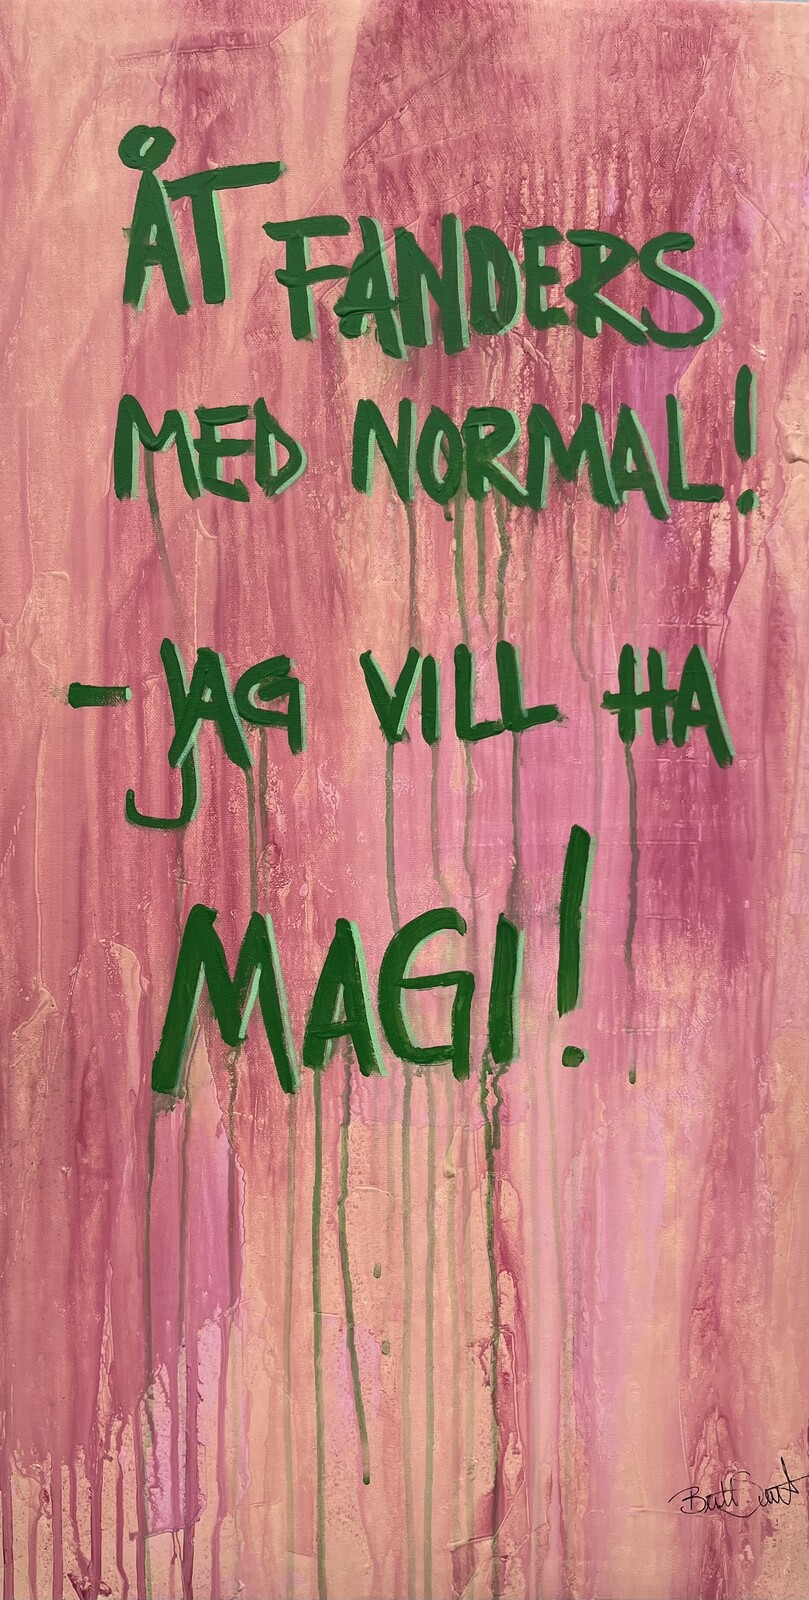 ÅT FANDERS
MED NORMAL!
- JAG VILL HA
MAGI!